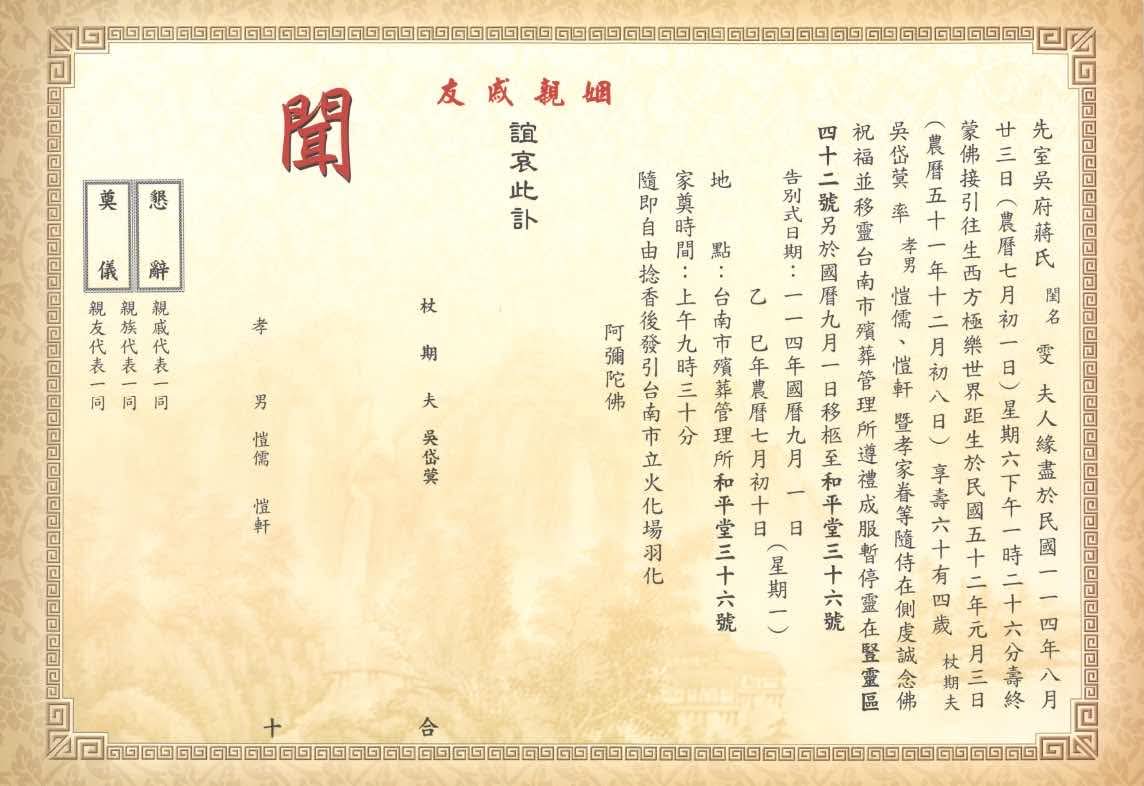 先室吳府蔣氏 閨名 雯 夫人緣盡於民國一一四年八月
廿三日(農曆七月初一日)星期六下午一時二十六分壽終
蒙佛接引往生西方極樂世界距生於民國五十二年元月三日
(農曆五十一年十二月初八日) 享壽六十有四歲 杖期夫
吳岱蓂 率 孝男 愷儒、愷軒 暨孝家眷等隨侍在側虔誠念佛
祝福並移靈台南市殯葬管理所遵禮成服暫停靈在豎靈區
四十二號另於國曆九月一日移柩至和平堂三十六號
告別式日期:一一四年國曆九月 一 日
乙 巳年農曆七月初十日
(星期一)
地 點:台南市殯葬管理所和平堂三十六號
家奠時間:上午九時三十分
隨即自由捻香後發引台南市立火化場羽化
阿彌陀佛
姻親戚友
誼哀此訃
聞
杖期夫 吳岱蓂
孝男 愷儒 愷軒
合
十
懇辭
奠儀
親戚代表一同
親族代表一同
親友代表一同